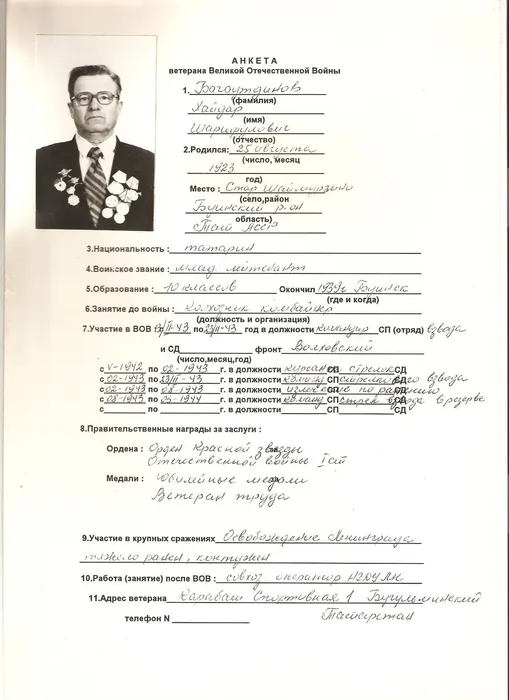 АНКЕТА
ветерана Великой Отечественной Войны
1. Багаутдинов
(фамилия)
Хайдар
(имя)
Шарифулович
(отчество)
2.Родился: 25 августа
(число, месяц
1923
год)
Место : Стар Шаймурзино
(село,район
Буинский р-он
область)
Тат АССР
3.Национальность : татарин
4.Воинское звание : млад. лейтенант
5.Образование : 10 классов Окончил 1939г Буинск
(где и когда)
6.Занятие до войны : колхозник комбайнер
(должность и организация)
7.Участие в ВОВ по год в должности командир СП (отряд) взвода
и СД фронт Волховский
(число,месяц,год)
с V-1942 по 02-1943 г. в должности курсант СП стрелк СД
с 02-1943 по 23/II-43 г. в должности команд СП стрелкового взвода
с 02-1943 по 08-1943 г. в должности излечение по ранению СД
с 08-1943 по г. в должности команд СП стрел взвода в резерве
с по г. в должности СП СД
8.Правительственные награды за заслуги :
Ордена : Орден Красной звезды
Отечественной войны I ст
Медали : Юбилейные медали
Ветеран труда
9.Участие в крупных сражениях Освобождение Ленинграда
тяжело ранен, контужен
10.Работа (занятие) после ВОВ : совхоз, оператор
11.Адрес ветерана Карабаш Спортивная 1 Бугульминский
телефон N Татарстан